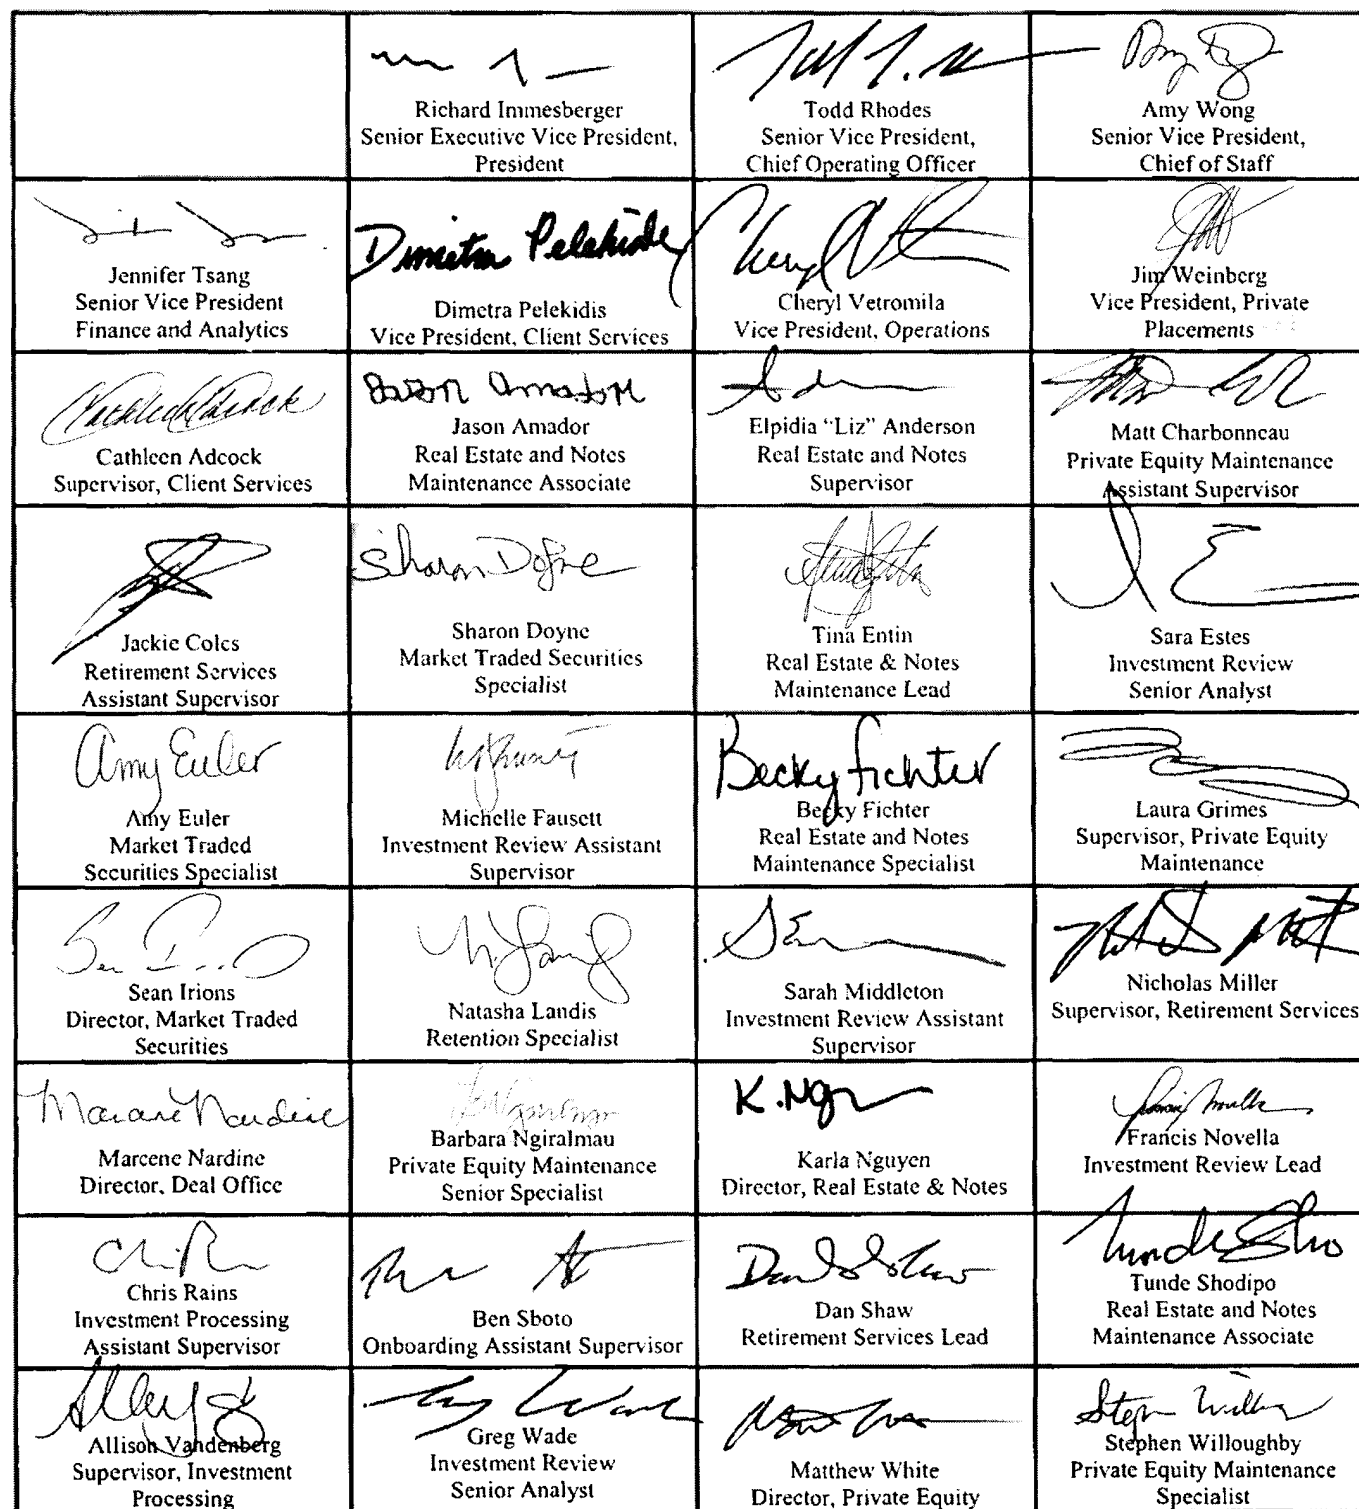 Richard Immesberger
Senior Executive Vice President,
President
Todd Rhodes
Senior Vice President,
Chief Operating Officer
Amy Wong
Senior Vice President,
Chief of Staff
Jennifer Tsang
Senior Vice President
Finance and Analytics
Dimetra Pelekidis
Dimetra Pelekidis
Vice President, Client Services
Cheryl Vetromila
Vice President, Operations
Jim Weinberg
Vice President, Private
Placements
Cathleen Adcock
Cathleen Adcock
Supervisor, Client Services
Jason Amador
Jason Amador
Real Estate and Notes
Maintenance Associate
Elpidia "Liz" Anderson
Real Estate and Notes
Supervisor
Matt Charbonneau
Private Equity Maintenance
Assistant Supervisor
Jackie Coles
Retirement Services
Assistant Supervisor
Sharon Doyne
Sharon Doyne
Market Traded Securities
Specialist
Tina Entin
Real Estate & Notes
Maintenance Lead
Sara Estes
Investment Review
Senior Analyst
Amy Euler
Amy Euler
Market Traded
Securities Specialist
Michelle Fausett
Investment Review Assistant
Supervisor
Becky Fichter
Becky Fichter
Real Estate and Notes
Maintenance Specialist
Laura Grimes
Supervisor, Private Equity
Maintenance
Sean Irions
Director, Market Traded
Securities
Natasha Landis
Retention Specialist
Sarah Middleton
Investment Review Assistant
Supervisor
Nicholas Miller
Supervisor, Retirement Services
Marcene Nardine
Marcene Nardine
Director, Deal Office
Barbara Ngiralmau
Private Equity Maintenance
Senior Specialist
K. Ng
Karla Nguyen
Director, Real Estate & Notes
Francis Novella
Investment Review Lead
Chris Rains
Investment Processing
Assistant Supervisor
Ben Sboto
Onboarding Assistant Supervisor
Dan Shaw
Dan Shaw
Retirement Services Lead
Tunde Sho
Tunde Shodipo
Real Estate and Notes
Maintenance Associate
Allison Vandenberg
Supervisor, Investment
Processing
Greg Wade
Investment Review
Senior Analyst
Matthew White
Director, Private Equity
Stephen Willoughby
Private Equity Maintenance
Specialist